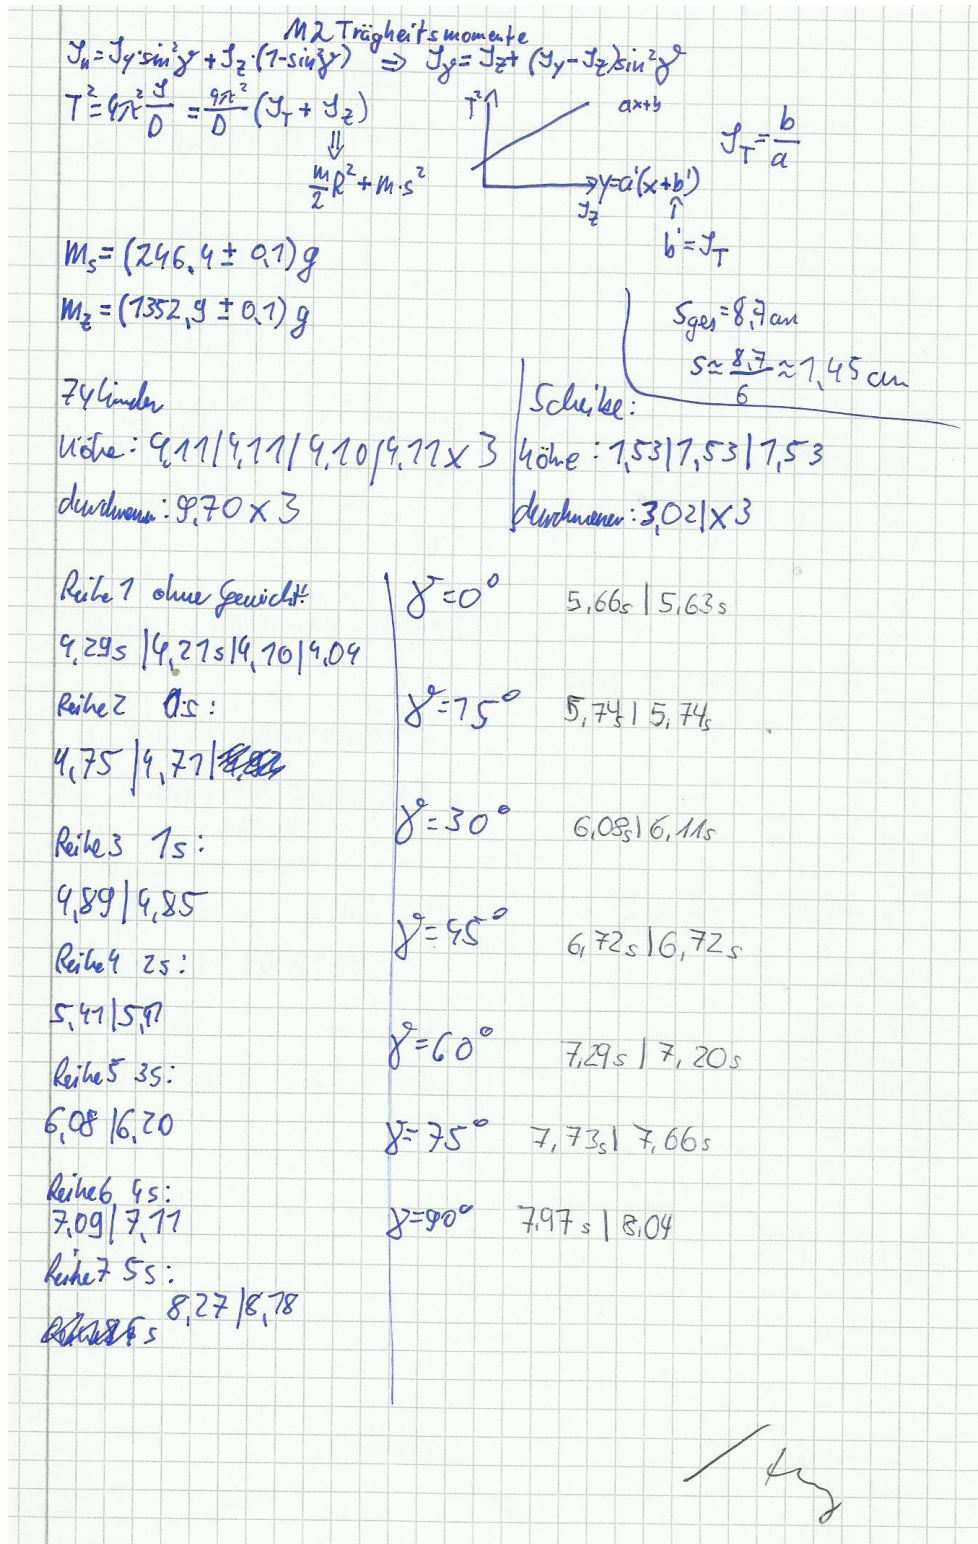 M2 Trägheitsmomente
J_n=J_y·sin²γ+J_z·(1-sin²γ) ⇒ J_γ=J_z+(J_y-J_z)sin²γ
T²=4π² J/D = 4π²/D (J_T+J_z)
⇓
m/2 R²+m·s²
T²
ax+b
J_z
y=a'(x+b')
↑
b'=J_T
J_T=b/a
m_s=(246,4±0,1)g
m_z=(1352,9±0,1)g
s_ges=8,7cm
s≈8,7/6≈1,45cm
Zylinder
Höhe: 4,11|4,11|4,10|4,11x3
durchmesser: 9,70x3
Scheibe:
höhe: 1,53|1,53|1,53
durchmesser: 3,02|x3
Reihe 1 ohne Gewicht:
4,29s|4,21s|4,10|4,04
Reihe 2 0s:
4,75|4,71|
Reihe 3 1s:
4,89|4,85
Reihe 4 2s:
5,41|5,41
Reihe 5 3s:
6,08|6,20
Reihe 6 4s:
7,09|7,11
Reihe 7 5s:
8,27|8,18
γ=0° 5,66s|5,63s
γ=15° 5,74s|5,74s
γ=30° 6,08s|6,11s
γ=45° 6,72s|6,72s
γ=60° 7,29s|7,20s
γ=75° 7,73s|7,66s
γ=90° 7,97s|8,04